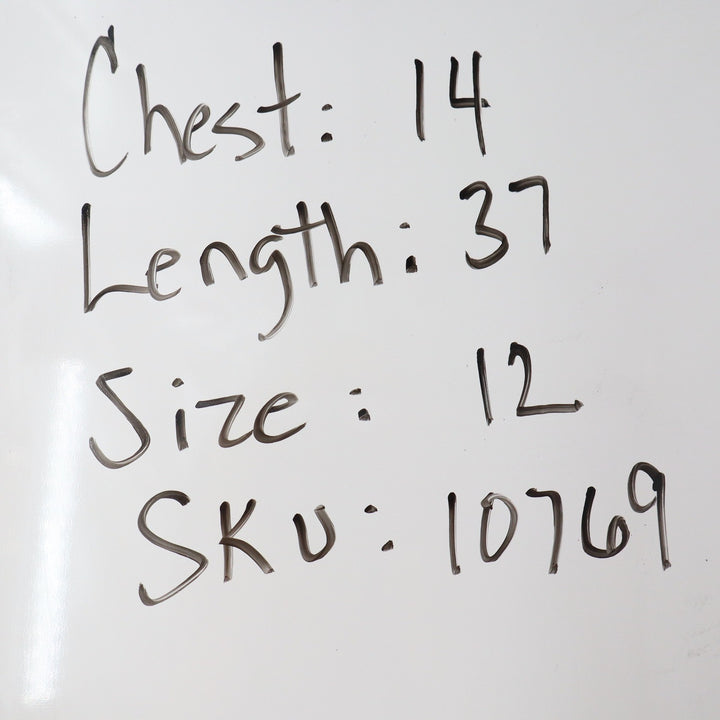 Chest: 14
Length: 37
Size: 12
SKU: 10769